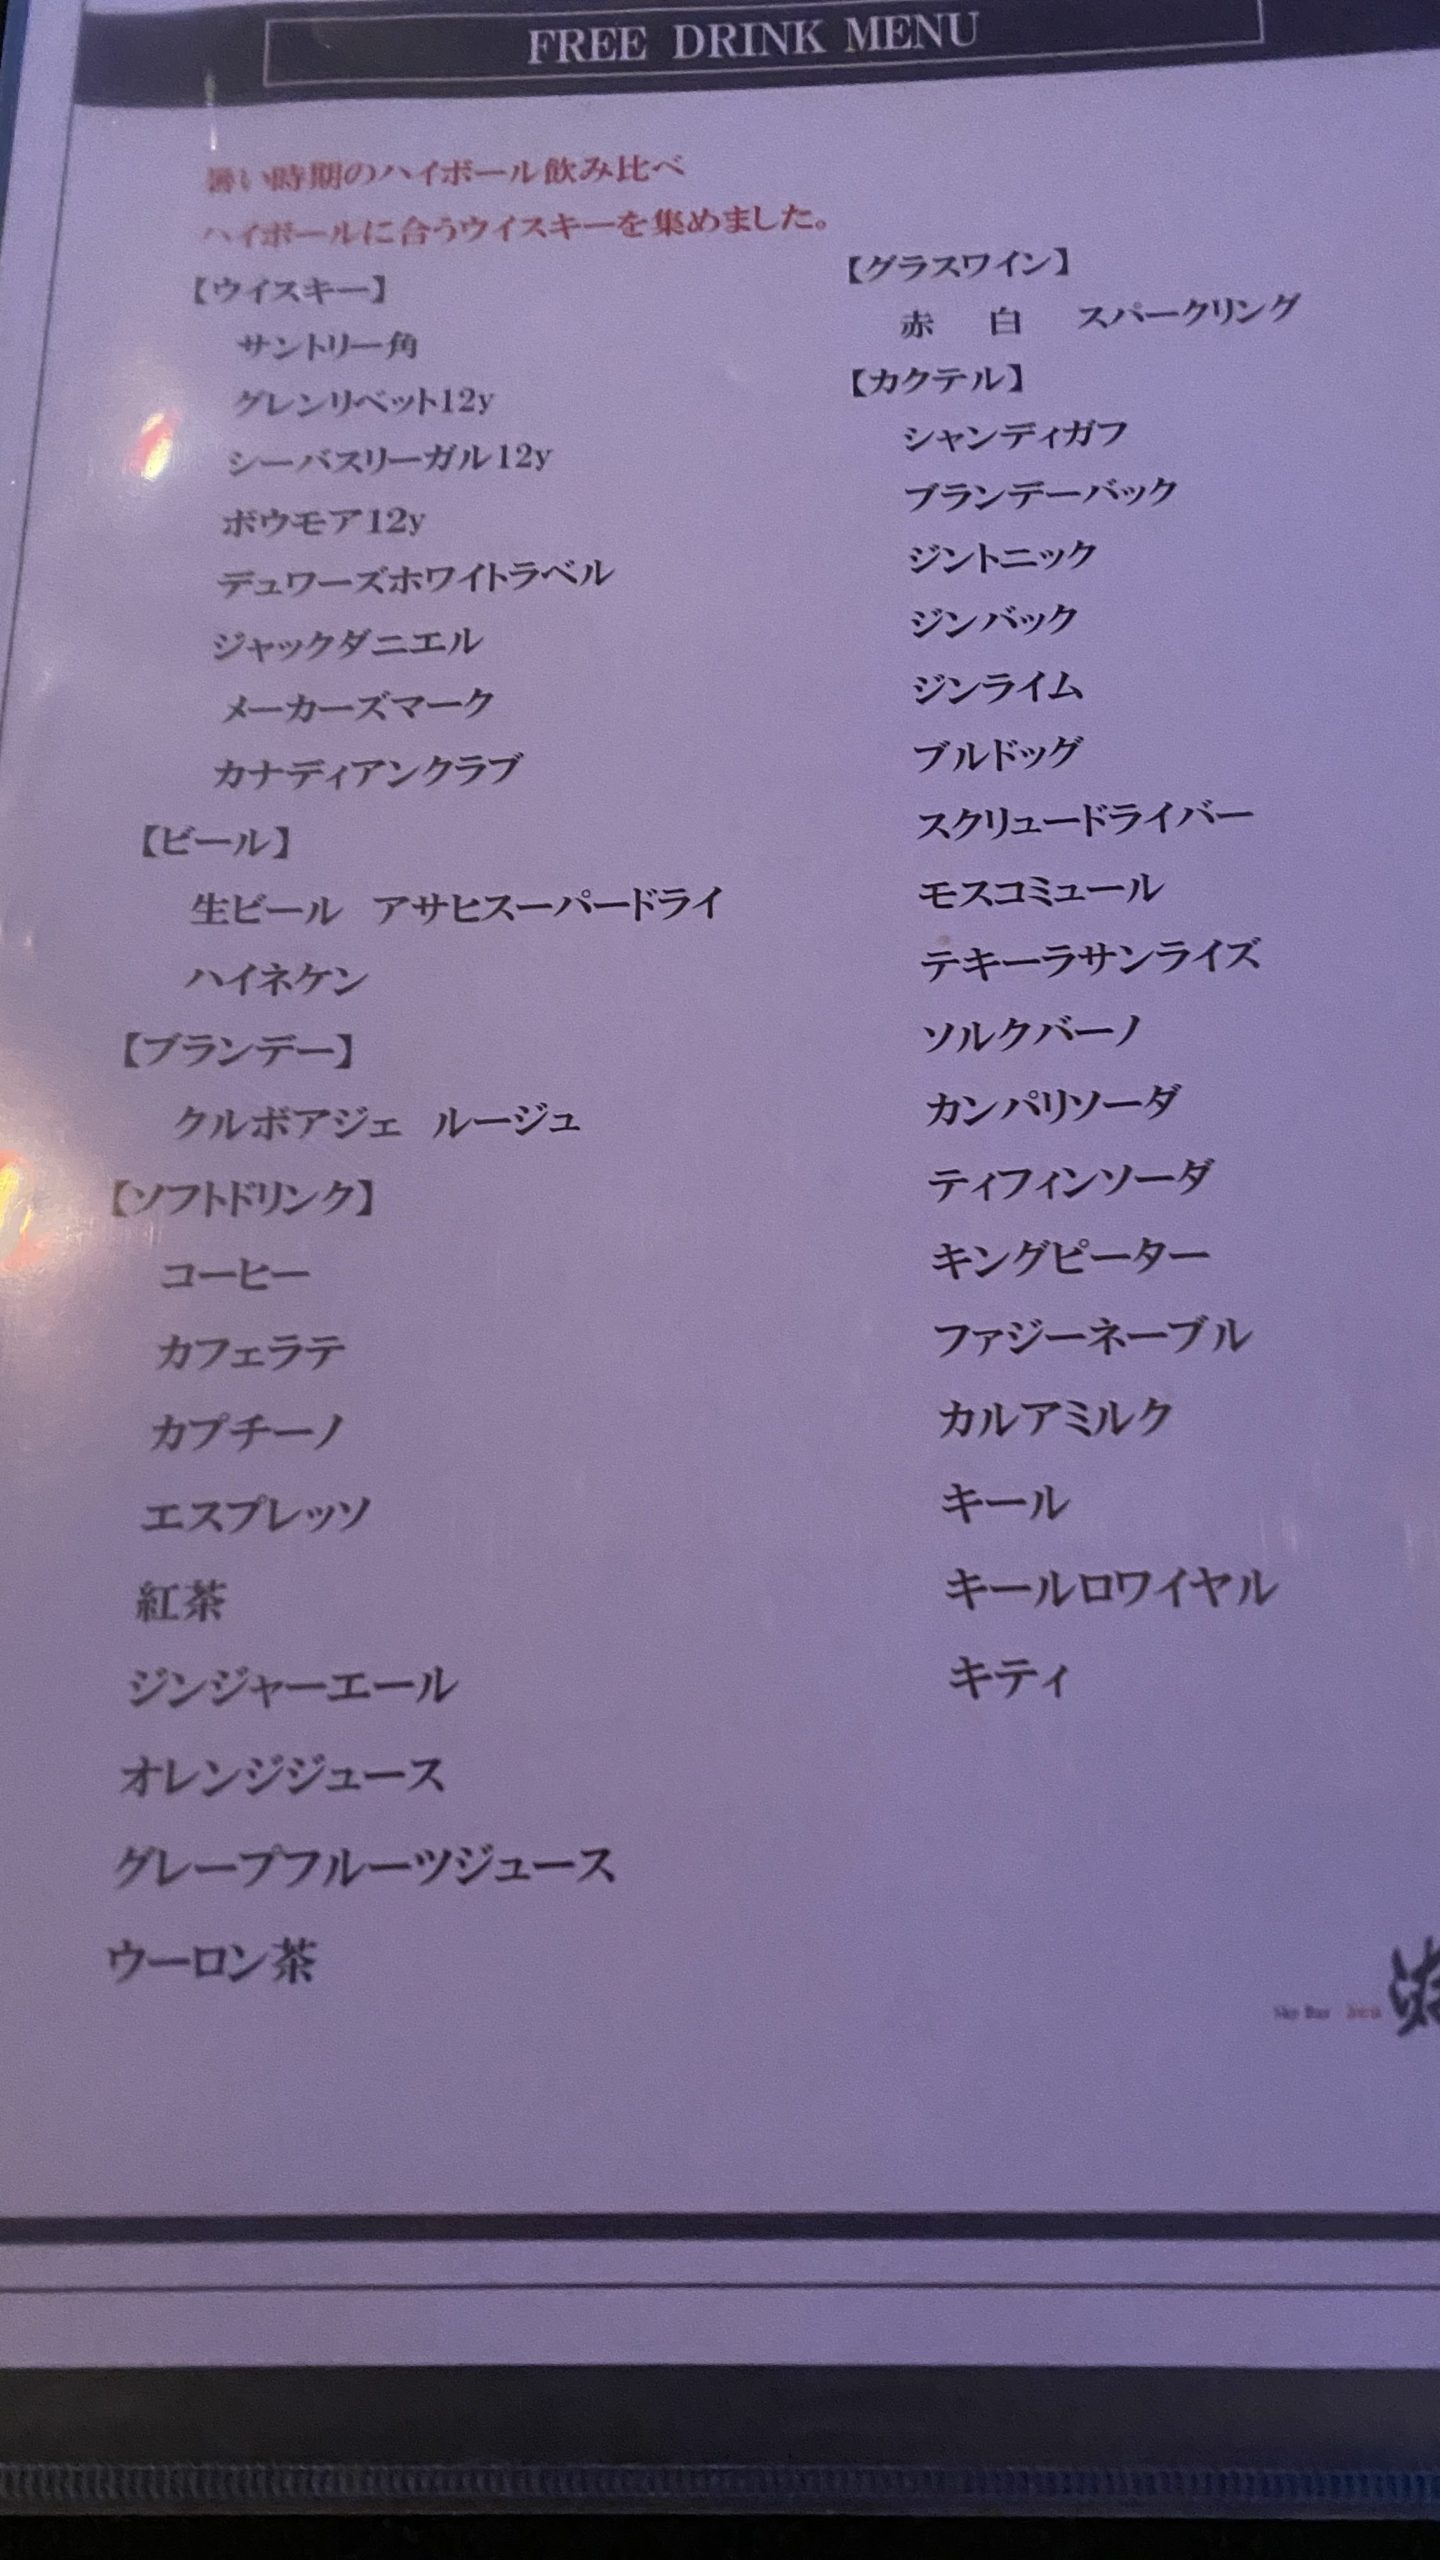 FREE DRINK MENU
暑い時期のハイボール飲み比べ
ハイボールに合うウイスキーを集めました。
【ウイスキー】
サントリー角
グレンリベット12y
シーバスリーガル12y
ボウモア12y
デュワーズホワイトラベル
ジャックダニエル
メーカーズマーク
カナディアンクラブ
【ビール】
生ビール アサヒスーパードライ
ハイネケン
【ブランデー】
クルボアジェ ルージュ
【ソフトドリンク】
コーヒー
カフェラテ
カプチーノ
エスプレッソ
紅茶
ジンジャーエール
オレンジジュース
グレープフルーツジュース
ウーロン茶
【グラスワイン】
赤 白 スパークリング
【カクテル】
シャンディガフ
ブランデーバック
ジントニック
ジンバック
ジンライム
ブルドッグ
スクリュードライバー
モスコミュール
テキーラサンライズ
ソルクバーノ
カンパリソーダ
ティフィンソーダ
キングピーター
ファジーネーブル
カルアミルク
キール
キールロワイヤル
キティ
Sky Bar